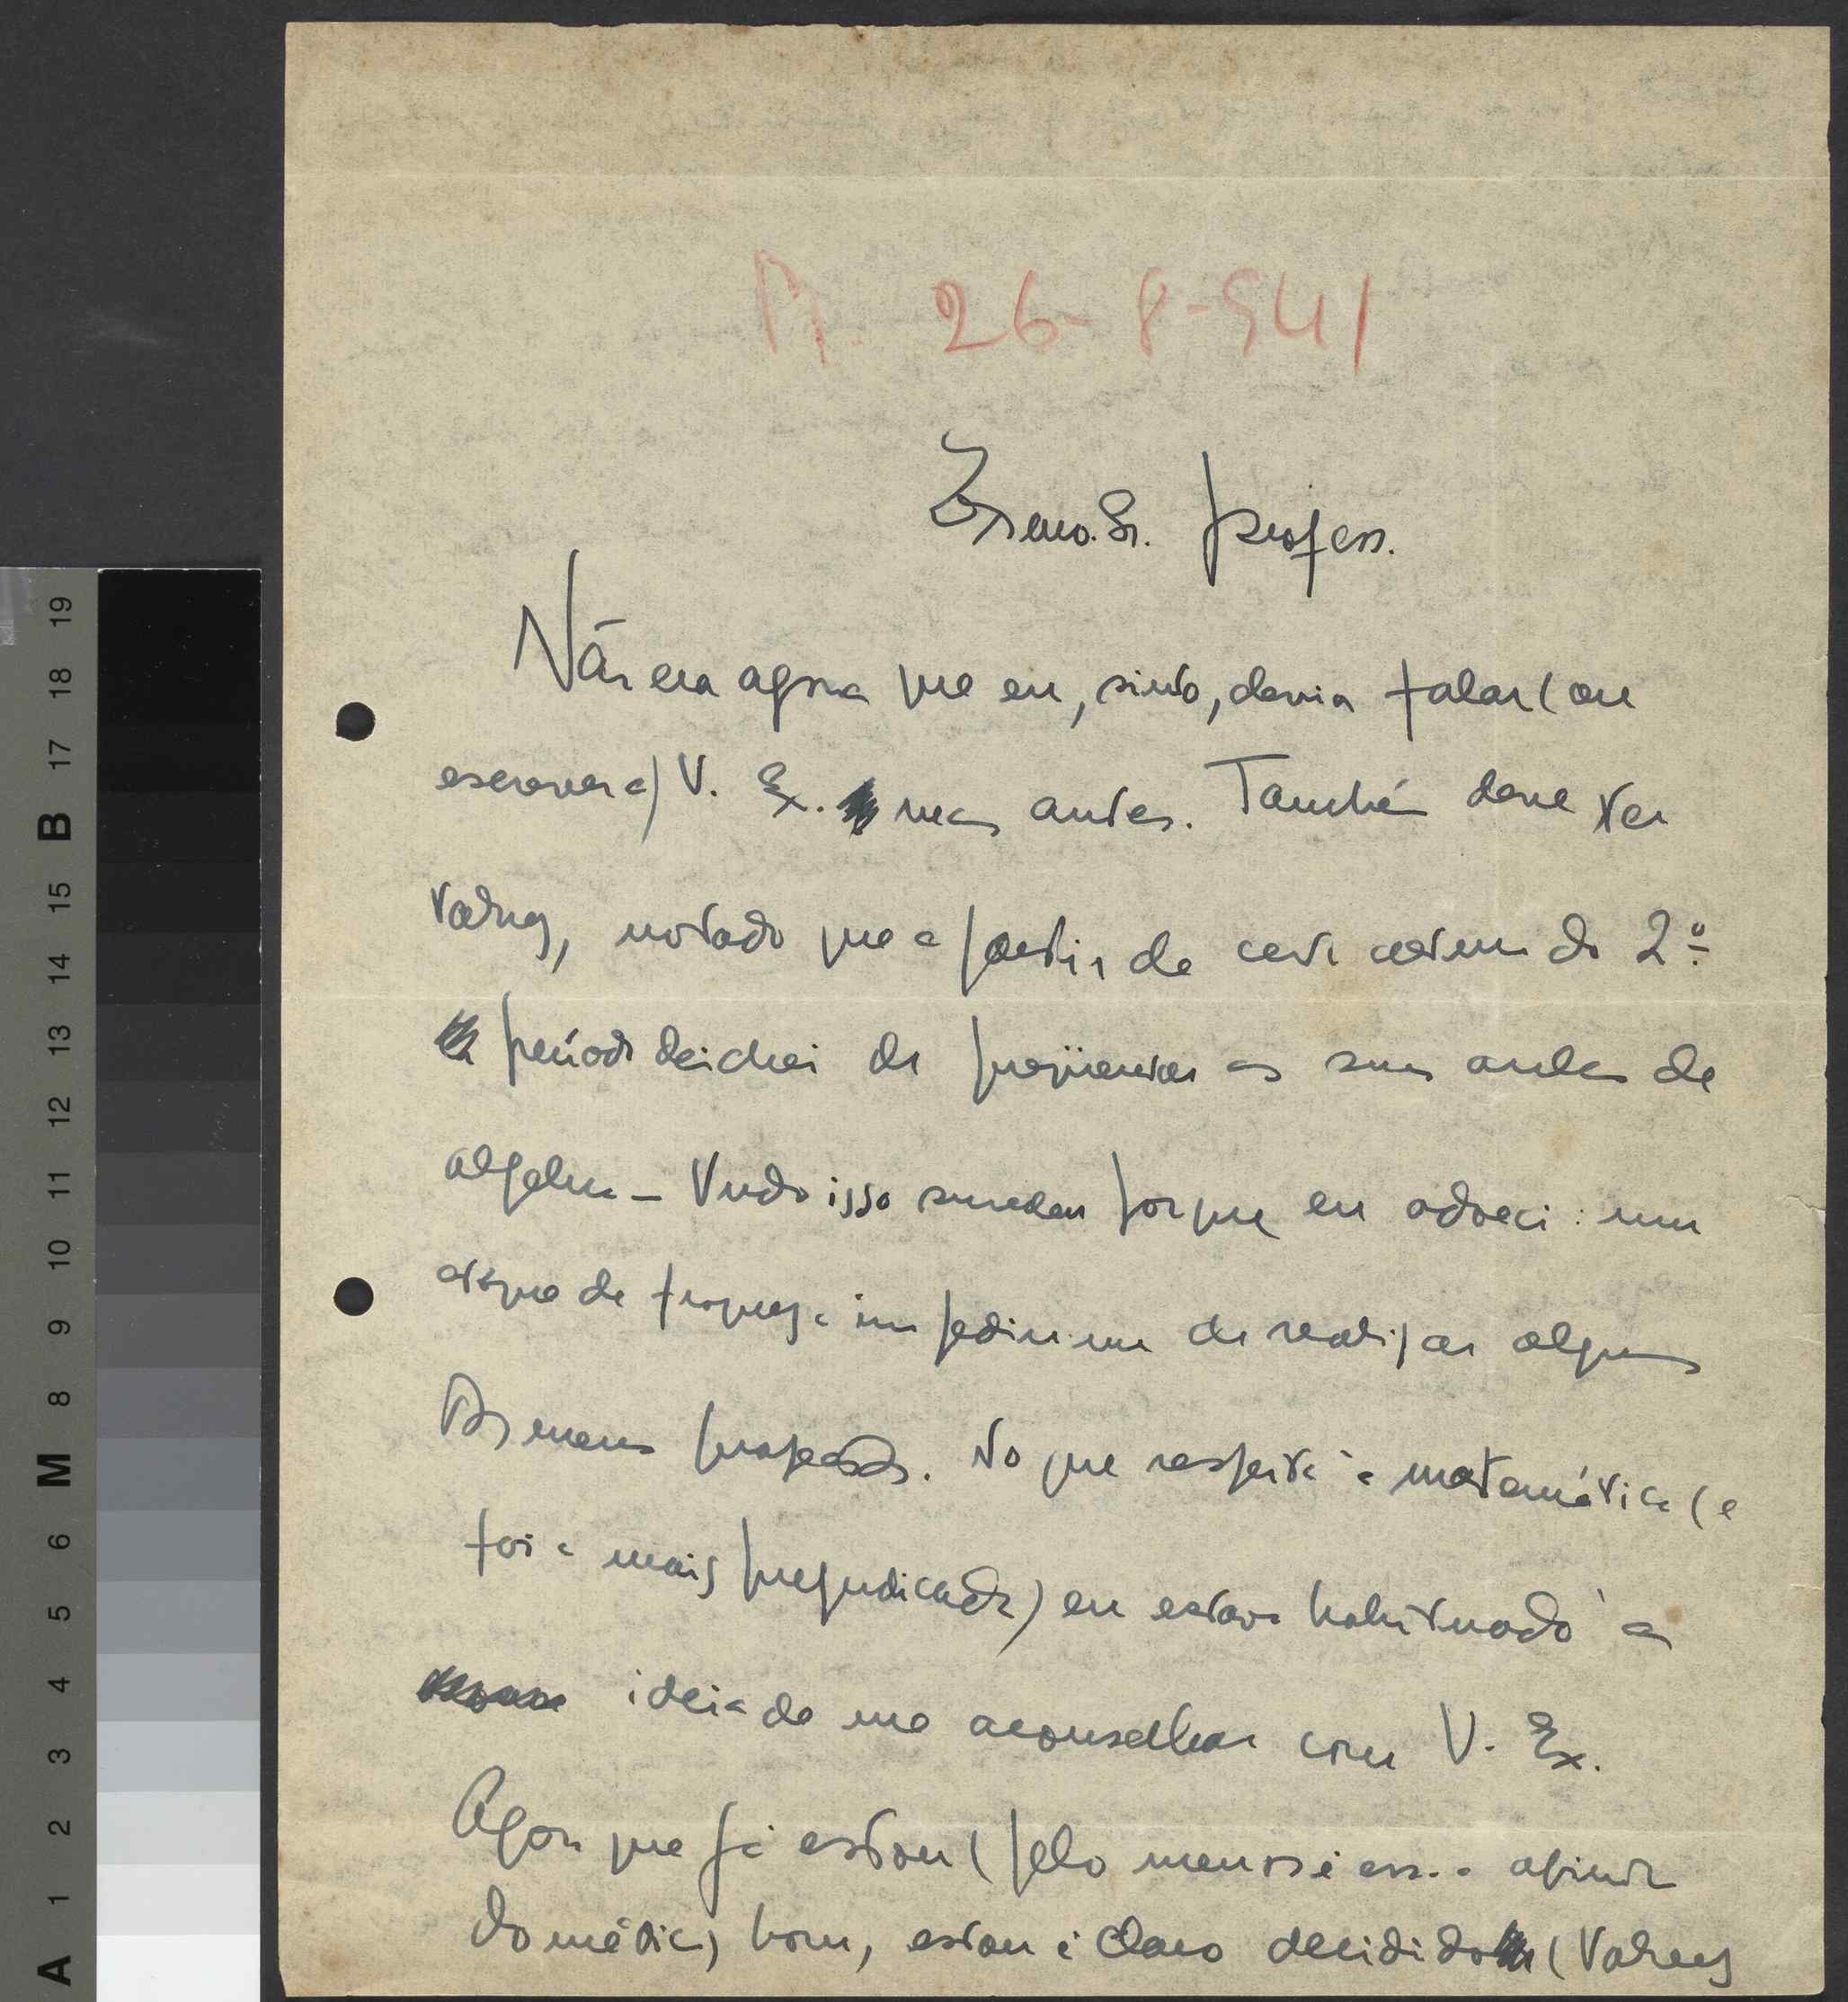 R. 26-8-941
Exmo. Sr. Profess.
Não era agora que eu, sinto, devia falar (ou
escrever a) V. Ex. mas antes. Também deve ter
talvez, notado que a partir de certa altura do 2º
período deichei de freqüentar as suas aulas de
algebra — Tudo isso sucedeu porque eu adoeci: um
ataque de fraqueza impediu-me de realizar alguns
dos meus projectos. No que respeita à matemática (e
foi a mais prejudicada) eu estava habituado à
ideia de me aconselhar com V. Ex.
Agora que já estou (pelo menos é essa a opinião
do médico) bom, estou é claro decidido (talvez